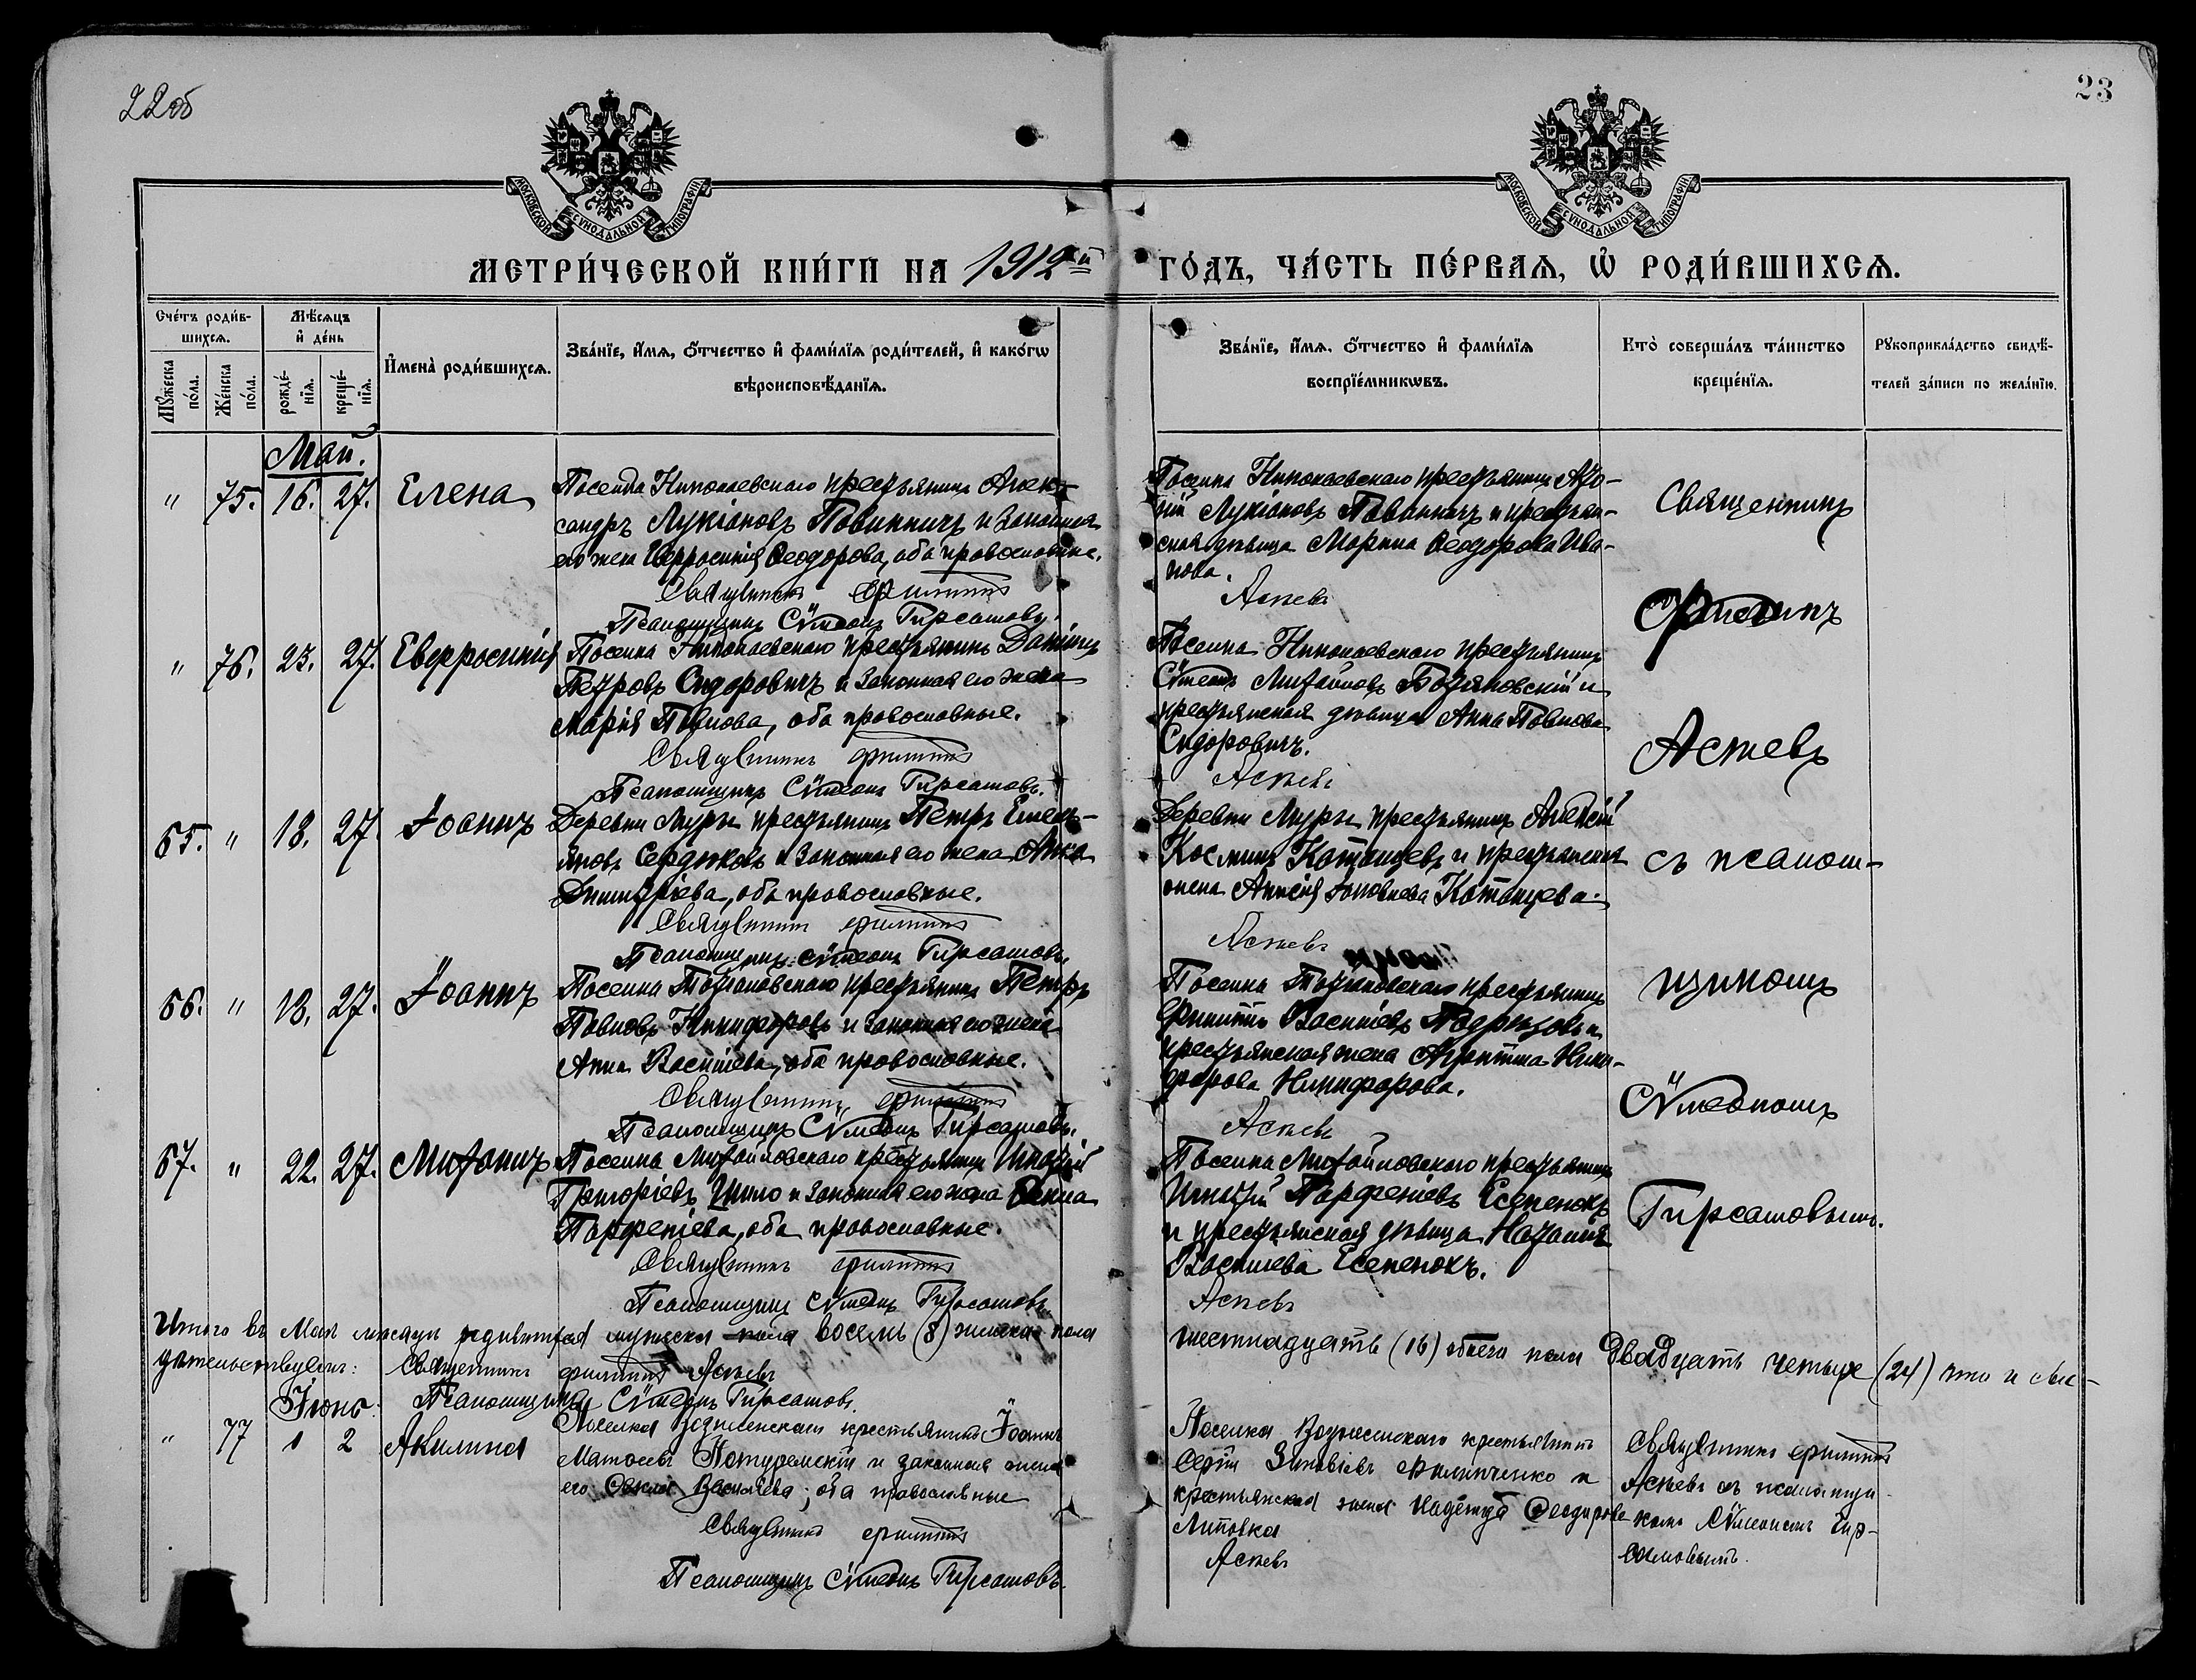 22 об
23
МОСКОВСКОЙ СУНОДАЛЬНОЙ ТИПОГРАФІИ.
МОСКОВСКОЙ СУНОДАЛЬНОЙ ТИПОГРАФІИ.
МЕТРИ́ЧЕСКОЙ КНИ́ГИ НА 1912й ГО́ДЪ, ЧА́СТЬ ПЕ́РВАЯ, Ѽ РОДИ́ВШИХСЯ.
Сче́тъ роди́в-
шихся.
Мѣ́сяцъ
и́ де́нь
Му́жеска
по́ла.
Же́нска
по́ла.
рожде́-
нїя.
креще́-
нїя.
И҆мена̀ роди́вшихся.
Зва́нїе, и҆́мя, ѻ҆́тчество и҆ фами́лїя роди́телей, и҆ како́гѡ
вѣроисповѣ́данїя.
Зва́нїе, и҆́мя, ѻ҆́тчество и҆ фами́лїя
воспрїе́мникѡвъ.
Кто̀ соверша́лъ та́инство
креще́нїя.
Рꙋкоприкла́дство свидѣ́-
телей за́писи по жела́нїю.
Май.
" 75. 16. 27. Елена
Поселка Николаевскаго крестьянинъ Алек-
сандръ Лукіановъ Павинничъ и законная
его жена Евфросинія Ѳеодорова, оба православные.
Священникъ Филиппъ
Псаломщикъ Сѵмеонъ Гирсамовъ.
Поселка Николаевскаго крестьянинъ
Лукіановъ Павинничъ и крестьян-
ская дѣвица Марина Ѳеодорова Ива-
нова.
Аскевъ
" 76. 23. 27. Евфросинія
Поселка Николаевскаго крестьянинъ Даніилъ
Петровъ Сидоровичъ и законная его жена
Марія Павлова, оба православные.
Священникъ Филиппъ
Псаломщикъ Сѵмеонъ Гирсамовъ.
Поселка Николаевскаго крестьянинъ
Сѵмеонъ Михайловъ и
крестьянская дѣвица Анна Павлова
Сидоровичъ.
Аскевъ
65. " 18. 27. Іоаннъ
Деревни Муры крестьянинъ Петръ Емель-
яновъ Сердюковъ и законная его жена Анна
Димитріева, оба православные.
Священникъ Филиппъ
Псаломщикъ Сѵмеонъ Гирсамовъ.
Деревни Муры крестьянинъ Алексій
Косминъ Катанцевъ и крестьянская
жена Катанцева.
Аскевъ
66. " 18. 27. Іоаннъ
Поселка крестьянинъ Петръ
Павловъ Никифоровъ и законная его жена
Анна Васильева, оба православные.
Священникъ Филиппъ
Псаломщикъ Сѵмеонъ Гирсамовъ.
Поселка крестьянинъ
Филиппъ Васильевъ и
крестьянская жена Агриппина Ники-
форова Никифорова.
Аскевъ
67. " 22. 27. Михаилъ
Поселка Михайловскаго крестьянинъ Игнатій
Григоріевъ Шило и законная его жена Ѳекла
Парфеніева, оба православные.
Священникъ Филиппъ
Псаломщикъ Сѵмеонъ Гирсамовъ.
Поселка Михайловскаго крестьянинъ
Игнатій Парфеніевъ Есепенокъ
и крестьянская дѣвица Наталія
Васильева Есепенокъ.
Аскевъ
Священникъ
Филиппъ
Аскевъ
съ псалом-
щикомъ
Сѵмеономъ
Гирсамовымъ.
Итого въ Маѣ мѣсяцѣ родившихся мужеска пола восемь (8) женска пола шестнадцать (16) обоего пола двадцать четыре (24) что и сви-
дѣтельствуемъ: Священникъ Филиппъ Аскевъ
Псаломщикъ Сѵмеонъ Гирсамовъ.
Іюнь.
" 77 1 2 Акилина
Поселка Вознесенскаго крестьянинъ Іоаннъ
и законная жена
его Ѳекла Васильева; оба православные
Священникъ Филиппъ
Псаломщикъ Сѵмеонъ Гирсамовъ.
Поселка Вознесенскаго крестьянинъ
Сергій Зиновіевъ Филипченко и
крестьянская жена Надежда Ѳеодорова
Липовка
Аскевъ
Священникъ Филиппъ
Аскевъ съ псаломщи-
комъ Сѵмеономъ Гир-
самовымъ.